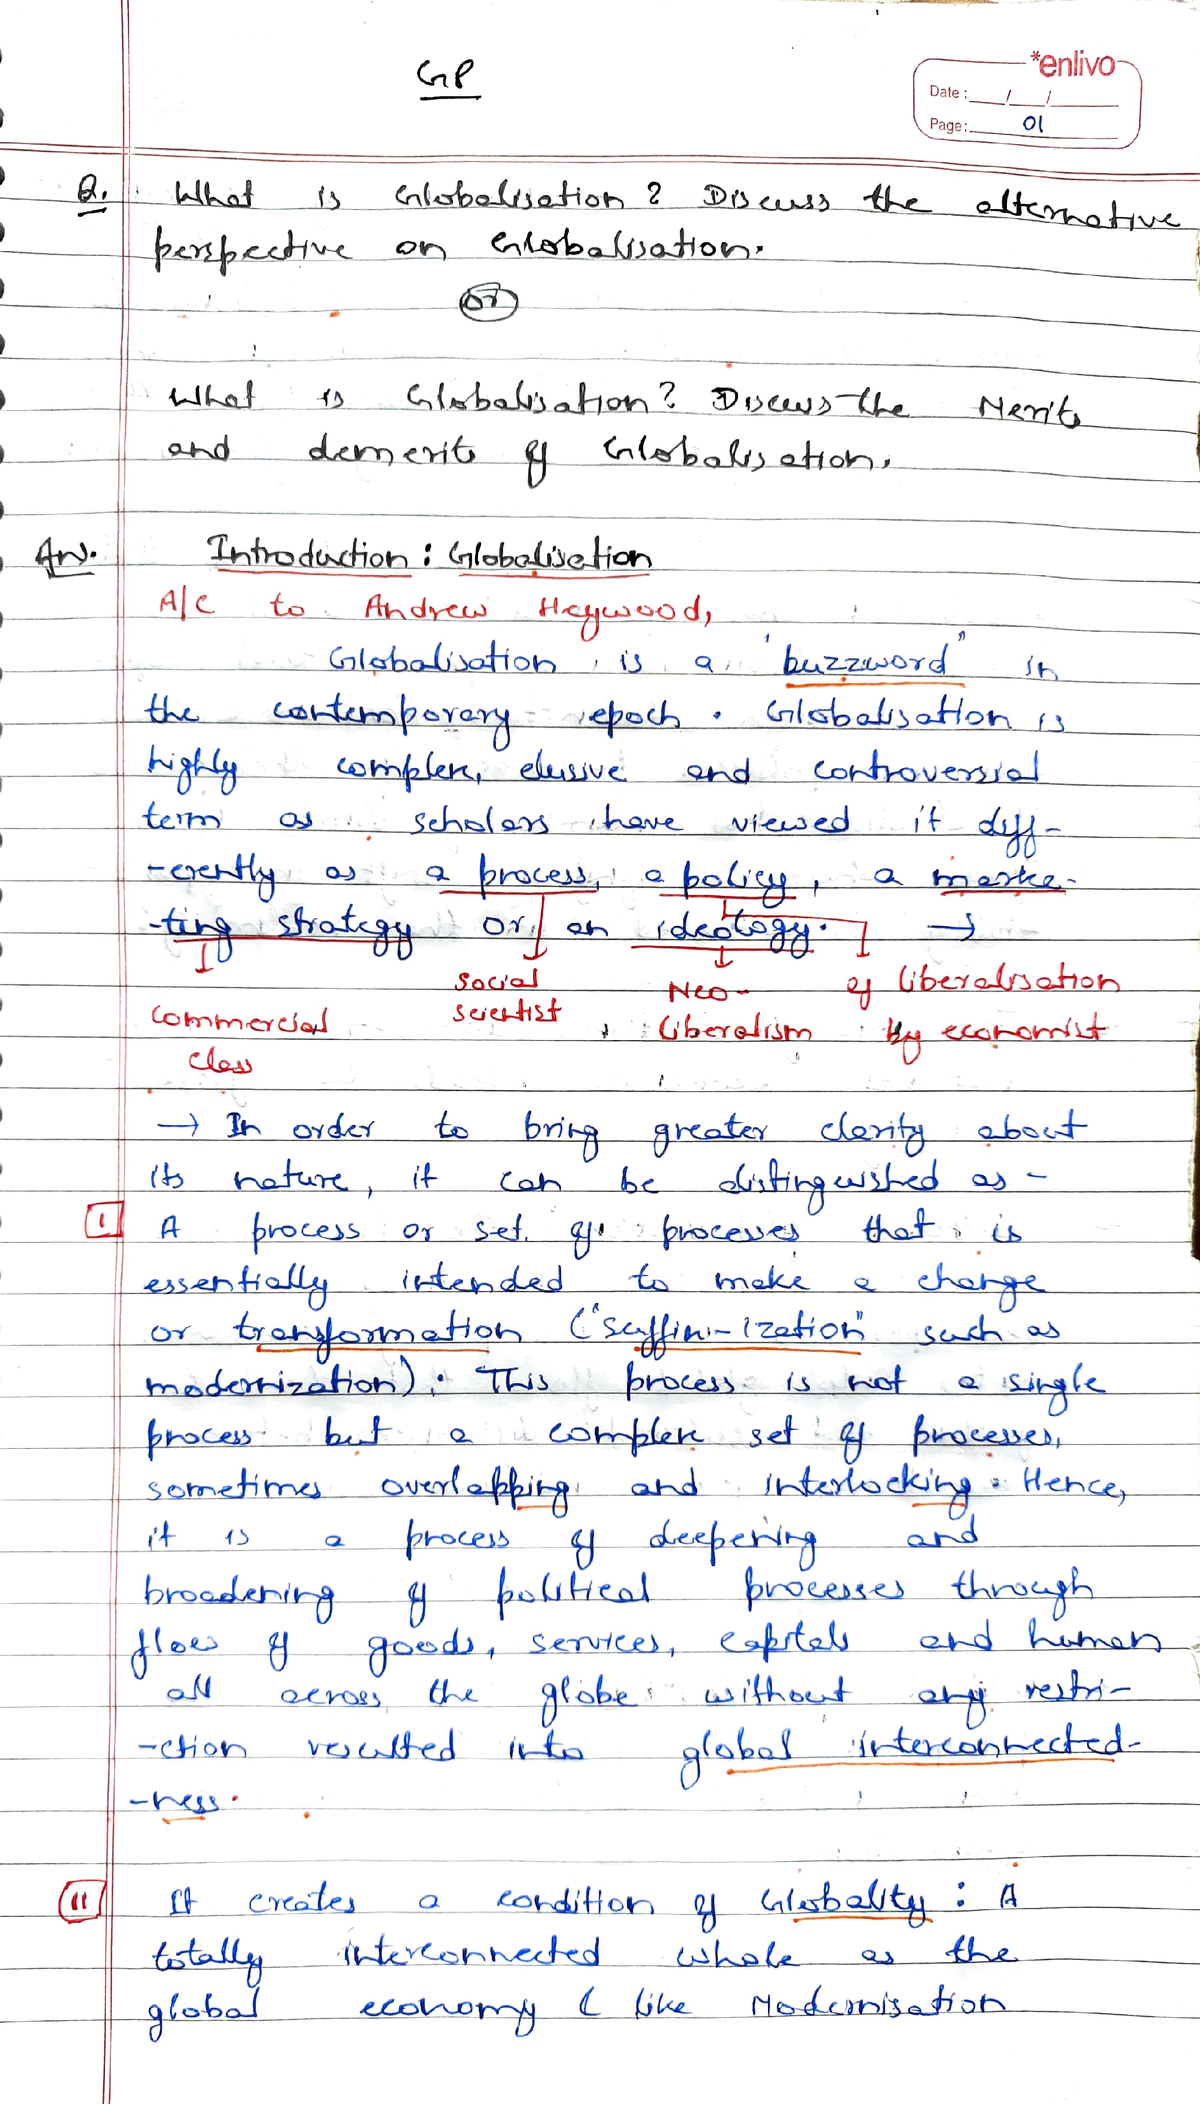 GP
*enlivo
Date : / /
Page: 01
Q. What is Globalisation? Discuss the alternative
perspective on Globalisation.
or
What is Globalisation? Discuss the Merits
and demerits of Globalisation.
Ans. Introduction : Globalisation
A/c to Andrew Heywood,
Globalisation is a "buzzword" in
the contemporary epoch. Globalisation is
highly complex, elusive and controversial
term as scholars have viewed it diff-
-erently as a process, a policy, a marke-
-ting strategy or an ideology. →
Social Neo- of liberalisation
Commercial scientist, liberalism by economist
class
→ In order to bring greater clarity about
its nature, it can be distinguished as -
I A process or set of processes that is
essentially intended to make a change
or transformation ("suffini-ization" such as
modernization). This process is not a single
process but a complex set of processes,
sometimes overlapping and interlocking. Hence,
it is a process of deepening and
broadening of political processes through
flow of goods, services, capitals and human
all across the globe without any restri-
-ction resulted into global interconnected-
-ness.
II It creates a condition of Globality : A
totally interconnected whole as the
global economy ( like Modernisation